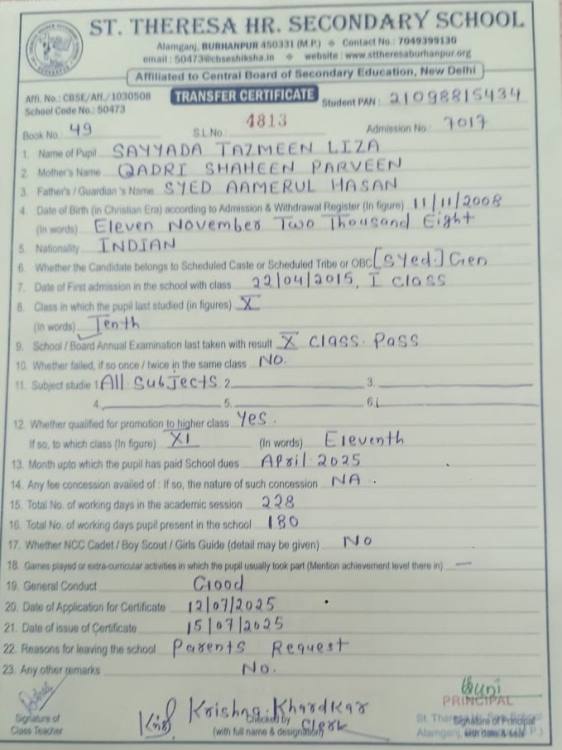 ST. THERESA HR. SECONDARY SCHOOL
Alamganj, BURHANPUR 450331 (M.P.) ❖ Contact No.: 7049399130
email : 50473@cbseshiksha.in ❖ website : www.sttheresaburhanpur.org
Affiliated to Central Board of Secondary Education, New Delhi
Affi. No.: CBSE/Aff./1030508 TRANSFER CERTIFICATE Student PAN : 21098815434
School Code No.: 50473
Book No. 49 S.L.No.: 4813 Admission No.: 7017
1. Name of Pupil SAYYADA TAZMEEN LIZA
2. Mother's Name QADRI SHAHEEN PARVEEN
3. Father's / Guardian 's Name SYED AAMERUL HASAN
4. Date of Birth (in Christian Era) according to Admission & Withdrawal Register (In figure) 11/11/2008
(In words) Eleven November Two Thousand Eight
5. Nationality INDIAN
6. Whether the Candidate belongs to Scheduled Caste or Scheduled Tribe or OBC [Syed] Gen
7. Date of First admission in the school with class 22/04/2015, I class
8. Class in which the pupil last studied (in figures) X
(In words) Tenth
9. School / Board Annual Examination last taken with result X class Pass
10. Whether failed, if so once / twice in the same class No.
11. Subject studie 1. All Subjects 2. 3.
4. 5. 6.
12. Whether qualified for promotion to higher class Yes.
If so, to which class (In figure) XI (In words) Eleventh
13. Month upto which the pupil has paid School dues April 2025
14. Any fee concession availed of : If so, the nature of such concession NA .
15. Total No. of working days in the academic session 228
16. Total No. of working days pupil present in the school 180
17. Whether NCC Cadet / Boy Scout / Girls Guide (detail may be given) No
18. Games played or extra-curricular activities in which the pupil usually took part (Mention achievement level there in) —
19. General Conduct Good
20. Date of Application for Certificate 12/07/2025
21. Date of issue of Certificate 15/07/2025
22. Reasons for leaving the school Parents Request
23. Any other remarks No.
Krishna Khardkar
PRINCIPAL
Signature of Checked by Clerk Signature of Principal
Class Teacher (with full name & designation) with date & seal